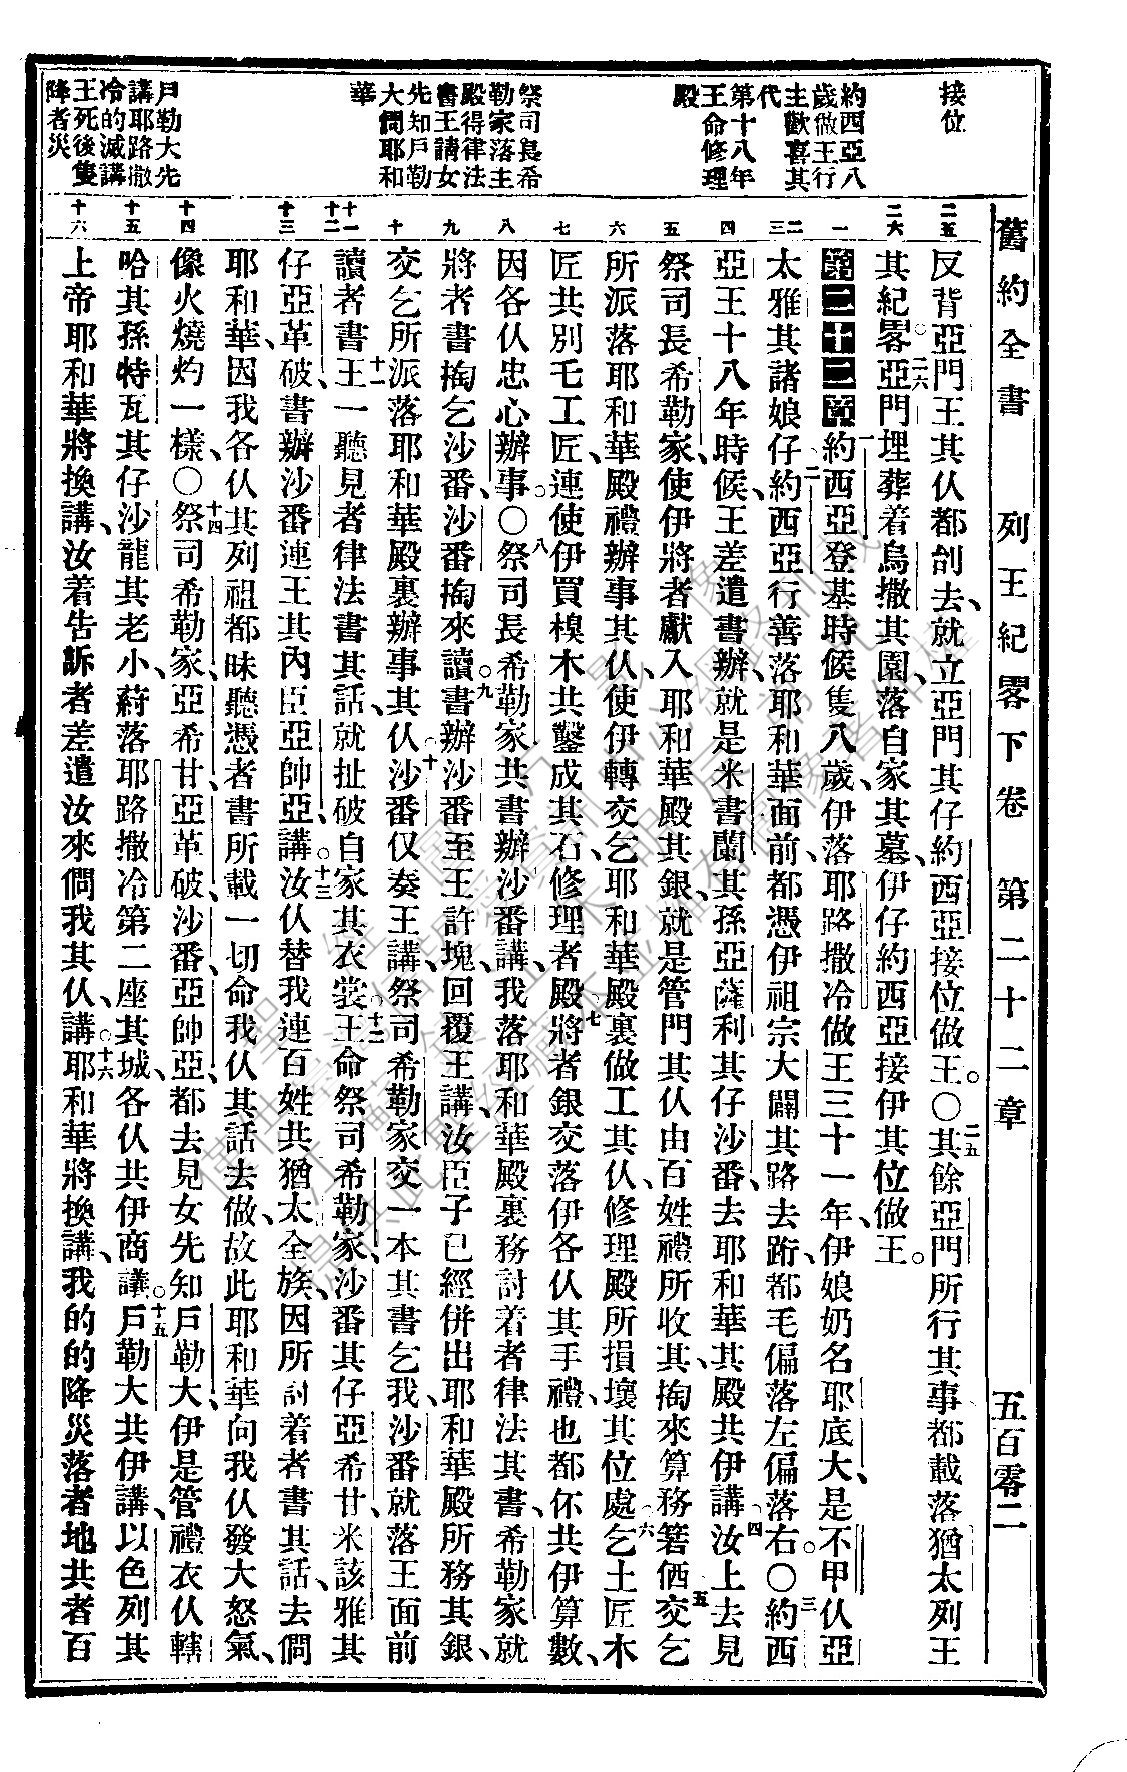 舊約全書 列王紀畧下卷 第二十二章 五百零二
接位
約西亞八
歲做王行
主歡喜其
代
第十八年
王命修理
殿
祭司長希
勒家落主
殿得律法
書王請女
先知戶勒
大問耶和
華
戶勒大先
講耶路撒
冷的滅講
王死後隻
降者災
二五
二六
一
二
三
四
五
六
七
八
九
十
十一
十二
十三
十四
十五
十六
反背亞門王其仫都刣去、就立亞門其仔約西亞接位做王。〇二五其餘亞門所行其事都載落猶太列王
其紀畧。二六亞門埋葬着烏撒其園、落自家其墓、伊仔約西亞接伊其位做王。
第二十二章 一約西亞登基時候隻八歲、伊落耶路撒冷做王三十一年、伊娘奶名耶底大、是不甲仫亞
太雅其諸娘仔、二約西亞行善落耶和華面前、都憑伊祖宗大闢其路去跡、都毛偏落左偏落右。〇三約西
亞王十八年時候、王差遣書辦、就是米書蘭其孫亞薩利其仔沙番、去耶和華其殿共伊講、四汝上去見
祭司長希勒家、使伊將者獻入耶和華殿其銀、就是管門其仫由百姓禮所收其、掏來算務箬価、五交乞
所派落耶和華殿禮辦事其仫、使伊轉交乞耶和華殿裏做工其仫、修理殿所損壞其位處、六乞土匠木
匠共別乇工匠、連使伊買模木共鑿成其石、修理者殿、七將者銀交落伊各仫其手禮、也都伓共伊算數、
因各仫忠心辦事。〇八祭司長希勒家共書辦沙番講、我落耶和華殿裏務討着者律法其書、希勒家就
將者書掏乞沙番、沙番掏來讀。九書辦沙番至王許塊回覆王講、汝臣子已經併出耶和華殿所務其銀、
交乞所派落耶和華殿裏辦事其仫、十沙番仅奏王講、祭司希勒家交一本其書乞我、沙番就落王面前
讀者書、十一王一聽見者律法書其話、就扯破自家其衣裳。十二王命祭司希勒家、沙番其仔亞希甘、米該雅其
仔亞革破、書辦沙番、連王其內臣亞帥亞、講、十三汝仫替我連百姓共猶太全族、因所討着者書其話、去問
耶和華、因我各仫其列祖都昧聽憑者書所載一切命我仫其話去做、故此耶和華向我仫發大怒氣、
像火燒灼一樣。〇十四祭司希勒家、亞希甘、亞革破、沙番、亞帥亞、都去見女先知戶勒大、伊是管禮衣仫轄
哈其孫特瓦其仔沙龍其老小、蔚落耶路撒冷第二座其城、各仫共伊商議。十五戶勒大共伊講、以色列其
上帝耶和華將換講、汝着告訴者差遣汝來問我其仫講、十六耶和華將換講、我的的降災落者地共者百